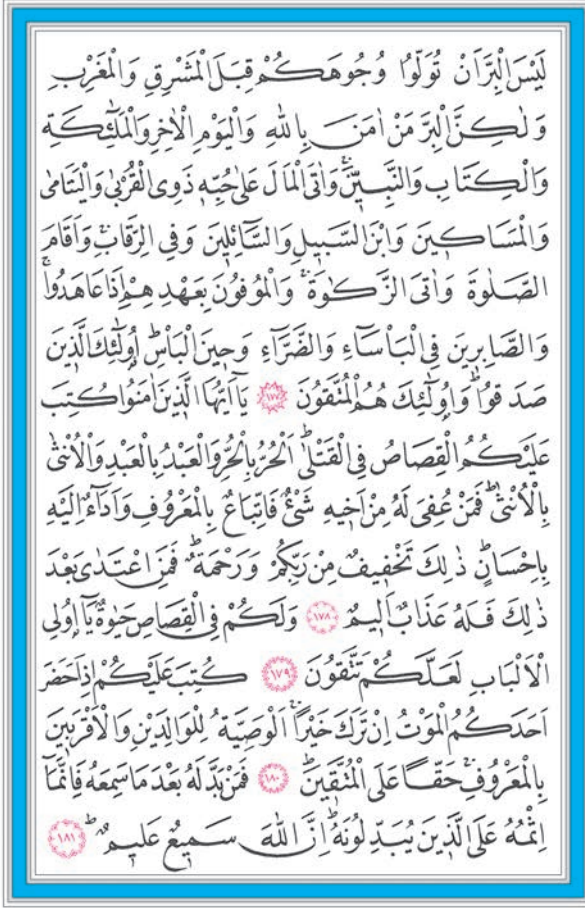 لَيْسَ الْبِرَّ اَنْ تُوَلُّوا وُجُوهَكُمْ قِبَلَ الْمَشْرِقِ وَالْمَغْرِبِ
وَلٰكِنَّ الْبِرَّ مَنْ اٰمَنَ بِاللّٰهِ وَالْيَوْمِ الْاٰخِرِ وَالْمَلٰٓئِكَةِ
وَالْكِتَابِ وَالنَّبِيّٖنَۚ وَاٰتَى الْمَالَ عَلٰى حُبِّهٖ ذَوِي الْقُرْبٰى وَالْيَتَامٰى
وَالْمَسَاكٖينَ وَابْنَ السَّبٖيلِ وَالسَّٓائِلٖينَ وَفِي الرِّقَابِۚ وَاَقَامَ
الصَّلٰوةَ وَاٰتَى الزَّكٰوةَۚ وَالْمُوفُونَ بِعَهْدِهِمْ اِذَا عَاهَدُواۚ
وَالصَّابِرٖينَ فِي الْبَأْسَٓاءِ وَالضَّرَّٓاءِ وَحٖينَ الْبَأْسِؕ اُو۬لٰٓئِكَ الَّذٖينَ
صَدَقُواؕ وَاُو۬لٰٓئِكَ هُمُ الْمُتَّقُونَ ﴿١٧٧﴾ يَٓا اَيُّهَا الَّذٖينَ اٰمَنُوا كُتِبَ
عَلَيْكُمُ الْقِصَاصُ فِي الْقَتْلٰىؕ اَلْحُرُّ بِالْحُرِّ وَالْعَبْدُ بِالْعَبْدِ وَالْاُنْثٰى
بِالْاُنْثٰىؕ فَمَنْ عُفِيَ لَهُ مِنْ اَخٖيهِ شَيْءٌ فَاتِّبَاعٌ بِالْمَعْرُوفِ وَاَدَٓاءٌ اِلَيْهِ
بِاِحْسَانٍؕ ذٰلِكَ تَخْفٖيفٌ مِنْ رَبِّكُمْ وَرَحْمَةٌؕ فَمَنِ اعْتَدٰى بَعْدَ
ذٰلِكَ فَلَهُ عَذَابٌ اَلٖيمٌ ﴿١٧٨﴾ وَلَكُمْ فِي الْقِصَاصِ حَيٰوةٌ يَٓا اُو۬لِي
الْاَلْبَابِ لَعَلَّكُمْ تَتَّقُونَ ﴿١٧٩﴾ كُتِبَ عَلَيْكُمْ اِذَا حَضَرَ
اَحَدَكُمُ الْمَوْتُ اِنْ تَرَكَ خَيْرًاۚ اَلْوَصِيَّةُ لِلْوَالِدَيْنِ وَالْاَقْرَبٖينَ
بِالْمَعْرُوفِۚ حَقًّا عَلَى الْمُتَّقٖينَؕ ﴿١٨٠﴾ فَمَنْ بَدَّلَهُ بَعْدَ مَا سَمِعَهُ فَاِنَّمَٓا
اِثْمُهُ عَلَى الَّذٖينَ يُبَدِّلُونَهُؕ اِنَّ اللّٰهَ سَمٖيعٌ عَلٖيمٌؕ ﴿١٨١﴾